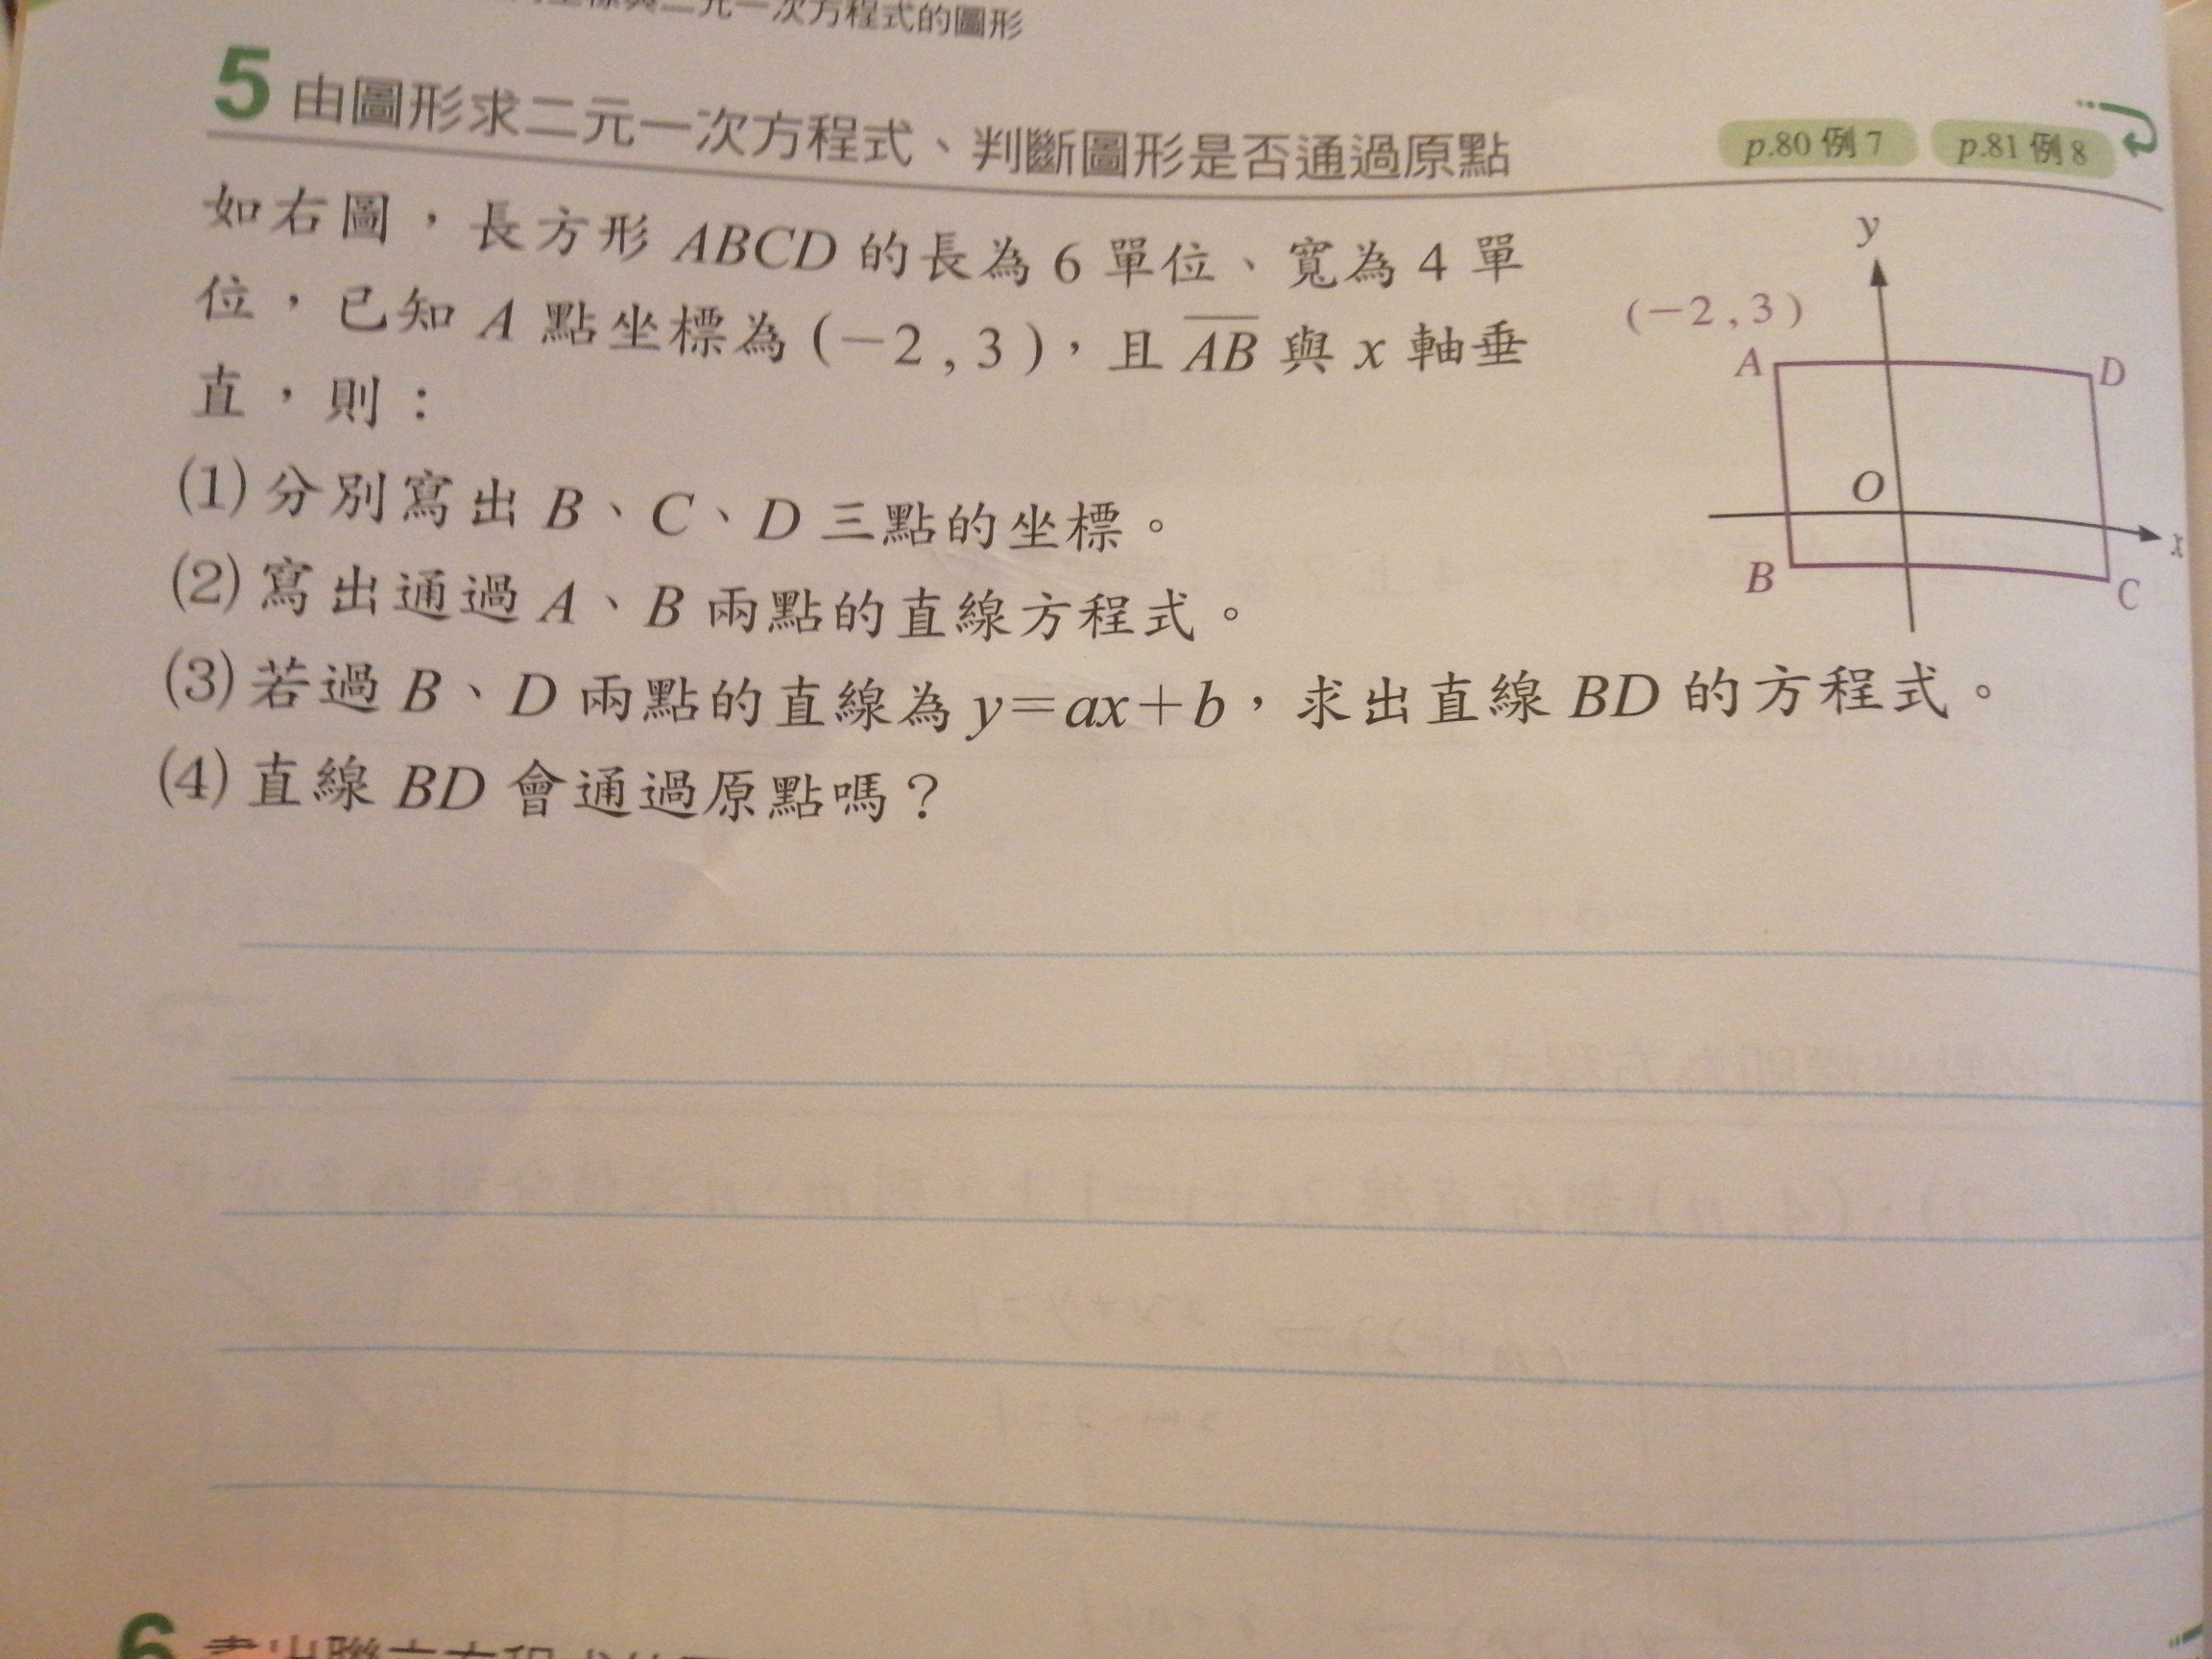 二元一次方程式的圖形
5 由圖形求二元一次方程式、判斷圖形是否通過原點
p.80 例 7
p.81 例 8
如右圖，長方形 ABCD 的長為 6 單位、寬為 4 單
位，已知 A 點坐標為 (－2 , 3 )，且 A̅B̅ 與 x 軸垂
直，則：
(1) 分別寫出 B、C、D 三點的坐標。
(2) 寫出通過 A、B 兩點的直線方程式。
(3) 若過 B、D 兩點的直線為 y＝ax＋b，求出直線 BD 的方程式。
(4) 直線 BD 會通過原點嗎？
y
(－2 , 3 )
A
D
O
x
B
C
6